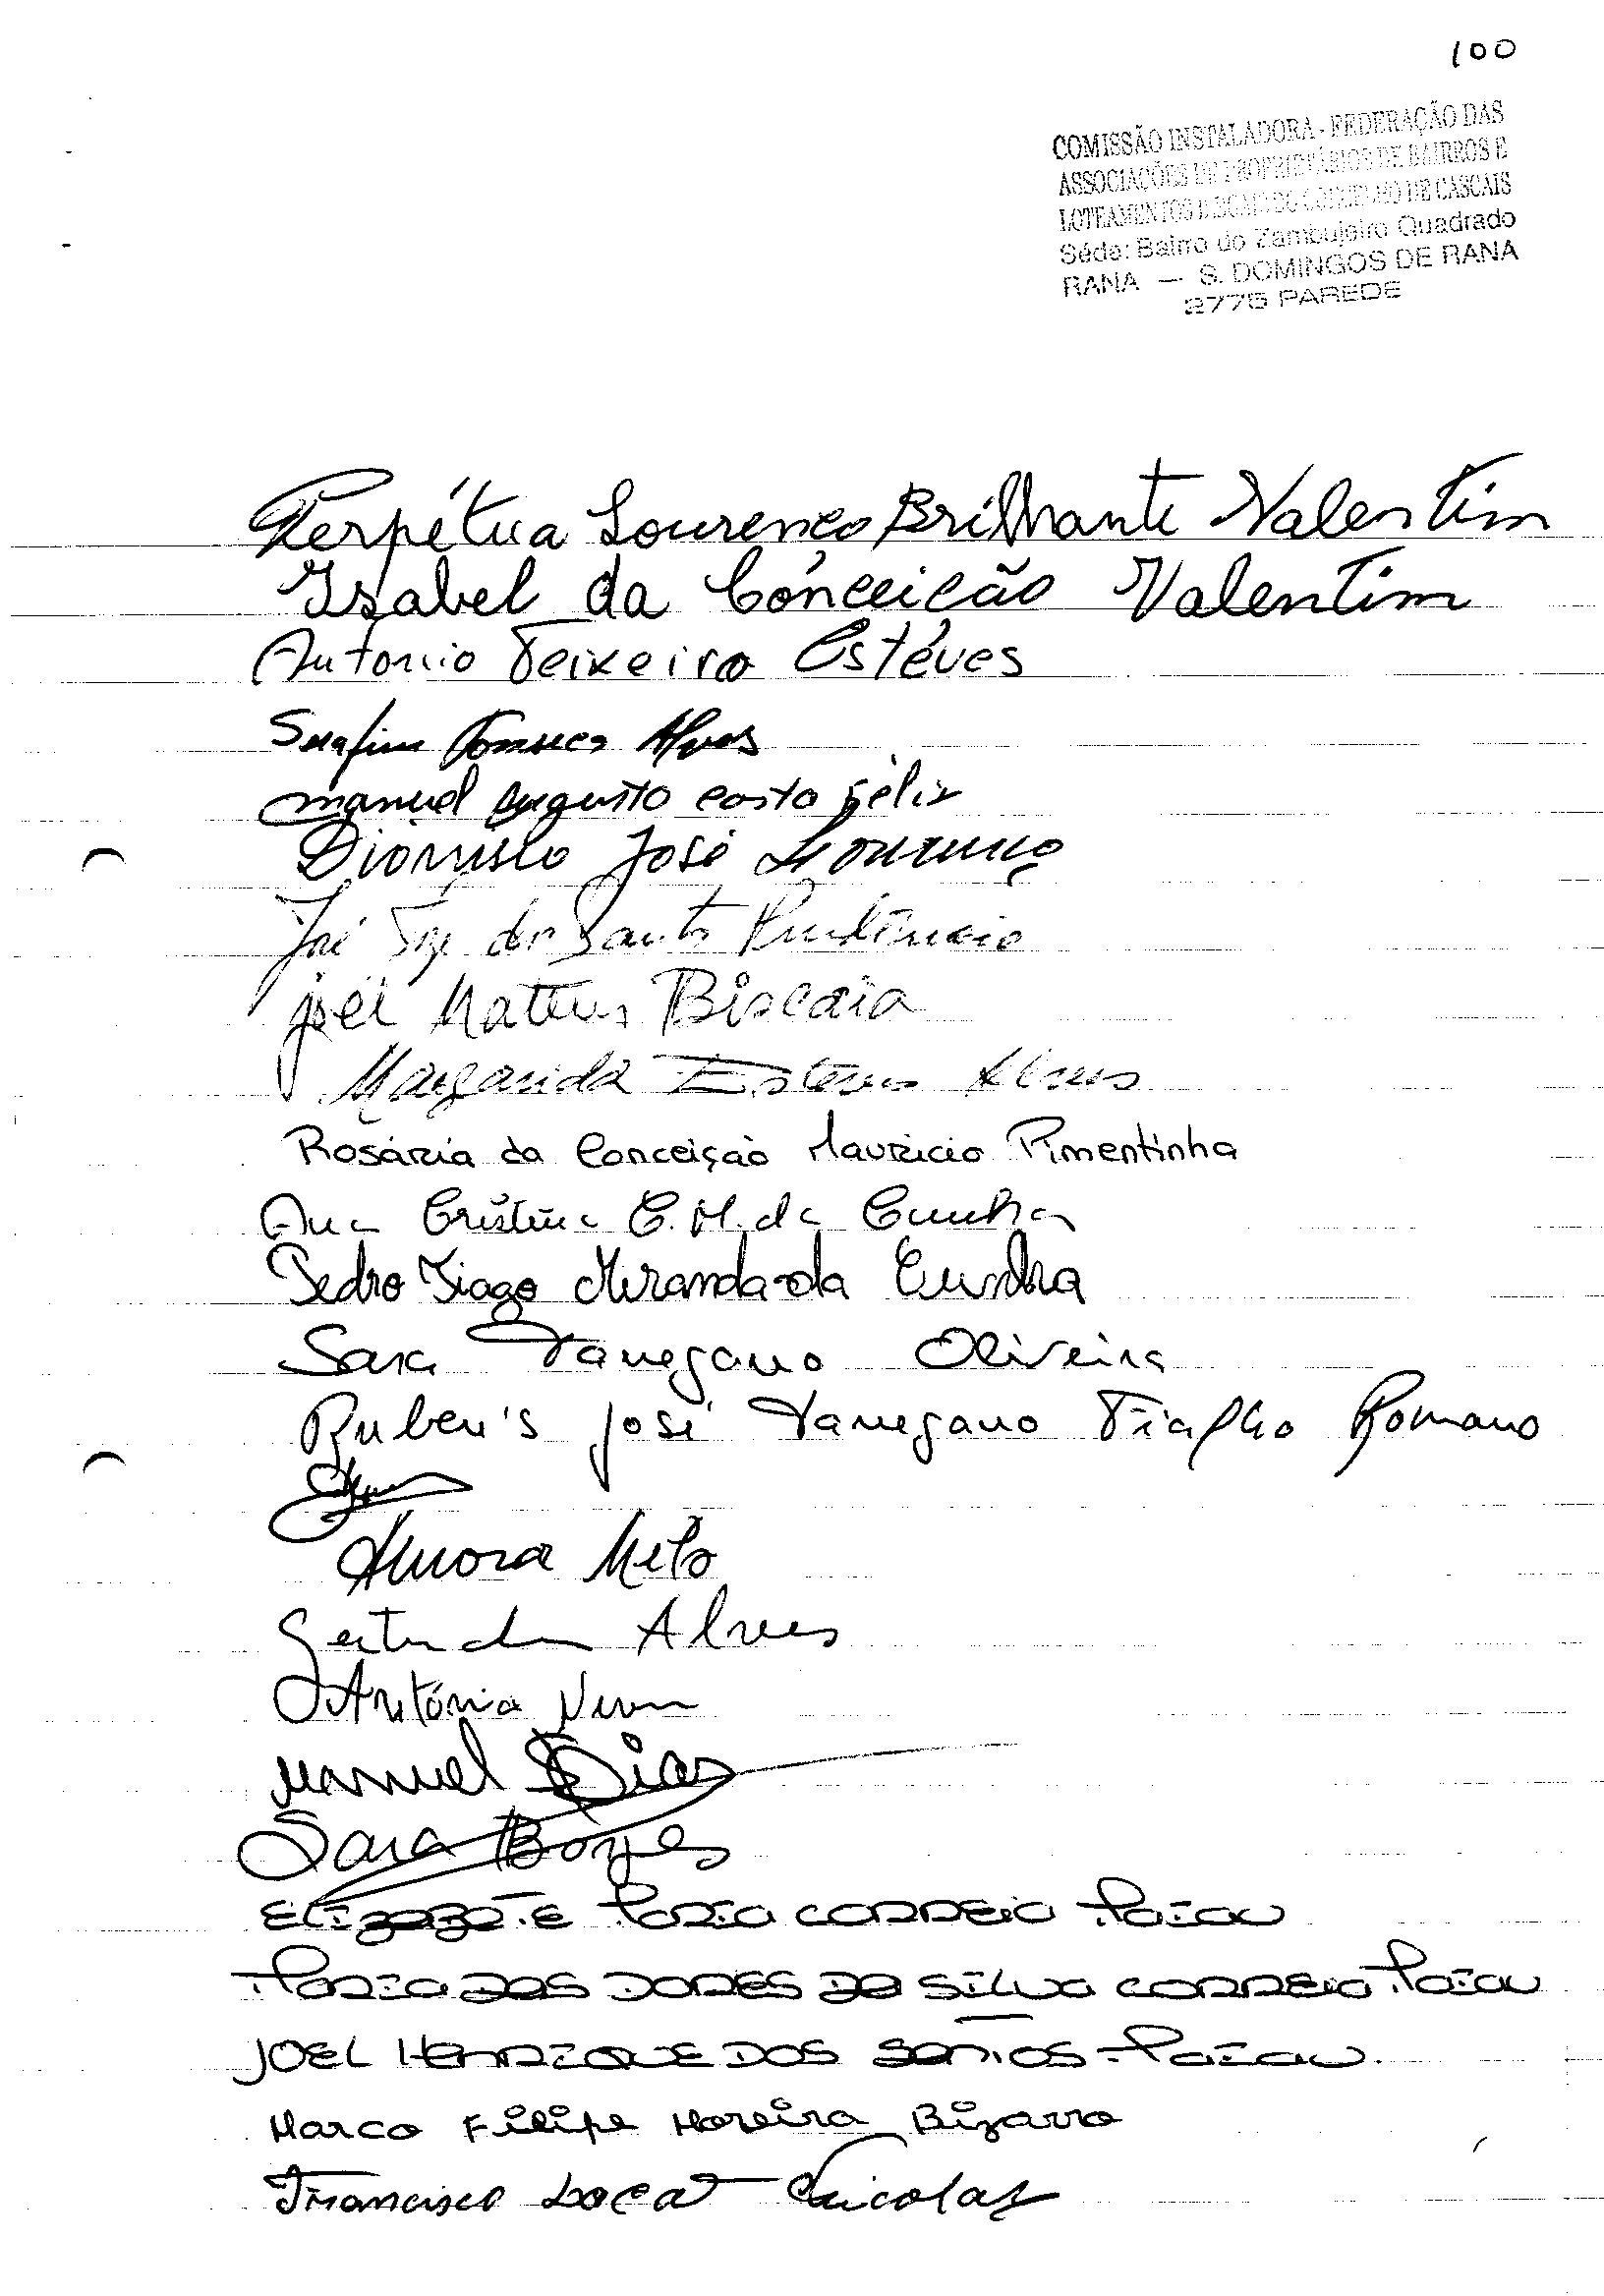 100
COMISSÃO INSTALADORA - FEDERAÇÃO DAS
ASSOCIAÇÕES DE PROPRIETÁRIOS DE BAIRROS E
LOTEAMENTOS DO CONCELHO DE CASCAIS
Séde: Bairro do Zambujeiro Quadrado
RANA — S. DOMINGOS DE RANA
2775 PAREDE
Perpétua Lourenço Brilhante Valentim
Isabel da Conceição Valentim
Antonio Teixeira Estéves
Serafim Fonseca Alves
manuel Augusto costa Félix
Dionisio José Lourenço
José dos Santos Prudêncio
joel Mateus Biscaia
Margarida Esteves Alves
Rosária da Conceição Mauricio Pimentinha
Ana Cristina C. M. da Cunha
Pedro Tiago Miranda da Cunha
Sara Tanegano Oliveira
Ruben's josé Tanegano Fialho Romano
Aurora Melo
Gertrudes Alves
Antónia
Manuel Dias
Sara Borges
Elizabete Maria Correia
Maria das DORES da Silva Correia
JOEL HENRIQUE DOS SANTOS
Marco Filipe Moreira Bizarro
Francisco Nicolas